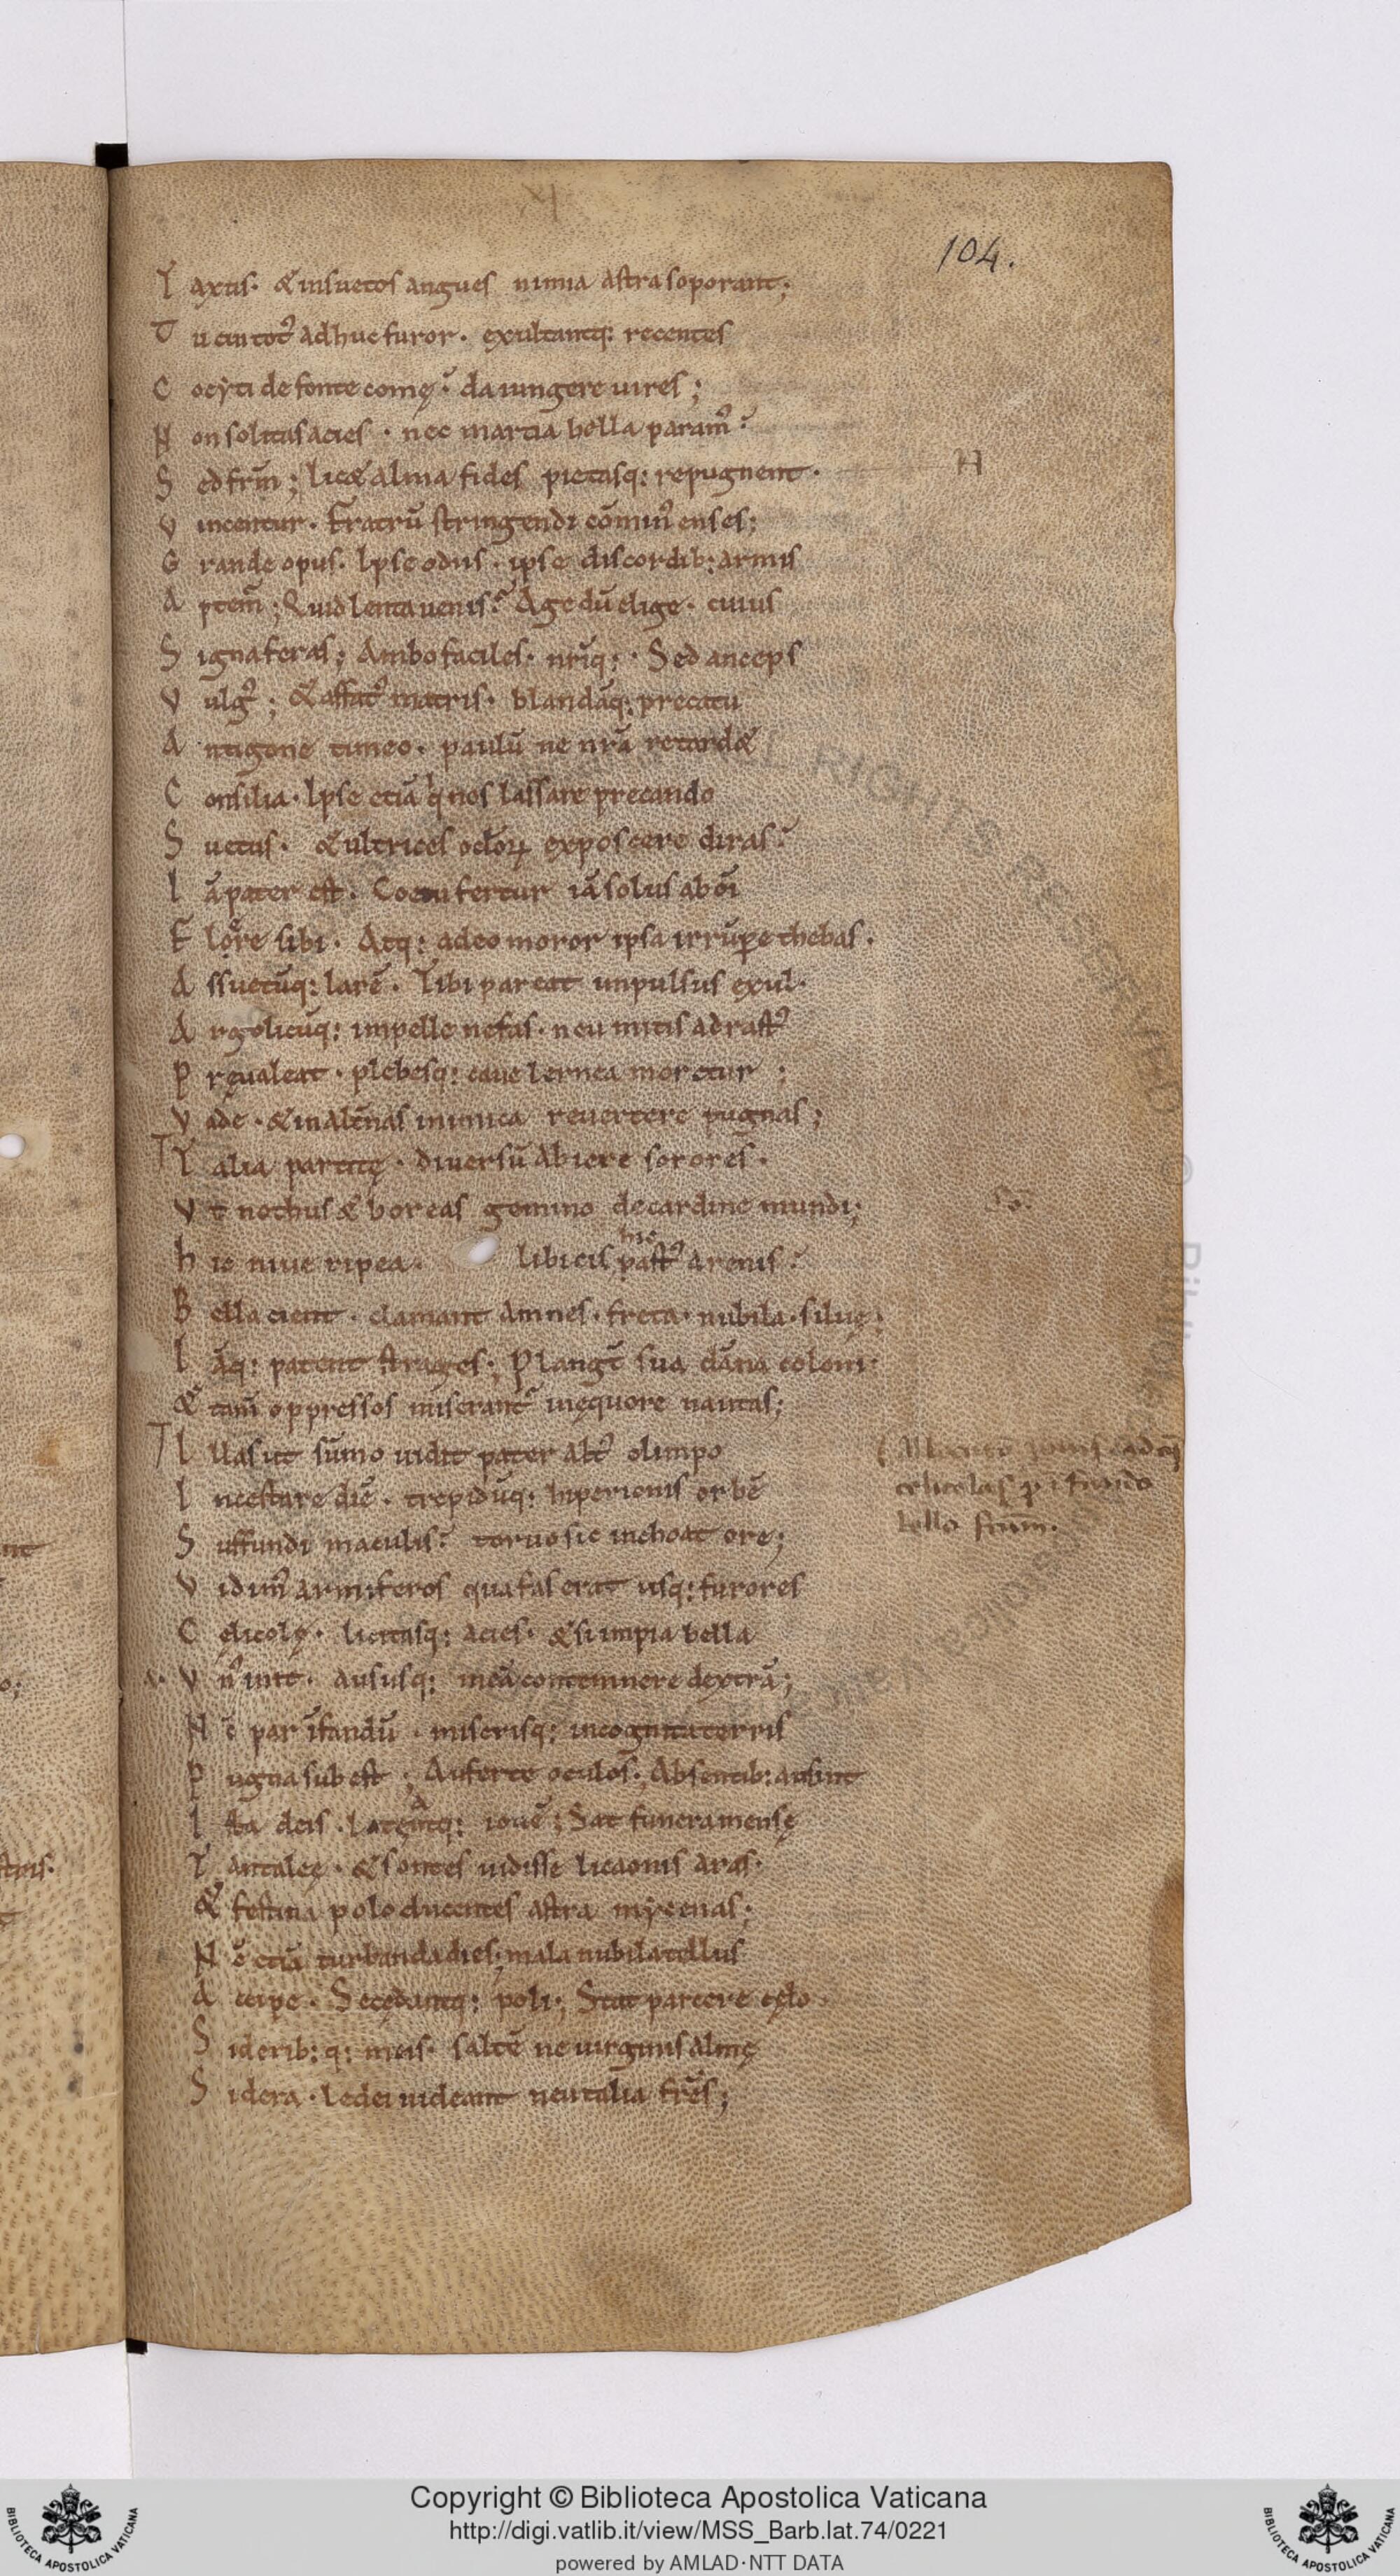 104.
T axus. & insuetos angues nimia astra soporant;
T u cui tot᷒ adhuc furor. exultantq: recentes
C ocyti de fonte comę? da iungere uires;
N on solitas acies. nec martia bella param᷒?
S ed frm̄; lic& alma fides pietasq: repugnent.
N
V incentur. Fratrū stringendi cōmin᷒ enses:
G rande opus. Ipse odiis. ipse discordib: armis
A ptem̄; Quid lenta uenis? Agedū elige. cuius
S igna feras; Ambo faciles. nr̄iq:. Sed anceps
V ulg᷒; & affat᷒ matris. blandāq: precatu
A ntigone timeo. paulū ne nr̄a retard&
C onsilia. Ipse etiā q nos lassare precando
S uetus. & ultrices oclōꝝ exposcere diras?
I ā pater est. Coetu fertur iā solus ab oī
F lōre sibi. Atq: adeo moror ipsa irrūpe thebas.
A ssuetūq: larē. Tibi pareat impulsus exul.
A rgolicūq: impelle nefas. neu mitis adrast᷒
P reualeat. plebesq: caue lernea moretur;
V ade. & in altn̄as inimica reuertere pugnas;
T alia partitę. diuersū abiere sorores.
V t nothus & boreas gemino de cardine mundi;
So:
h ic niue ripea. libicis hic past᷒ arenis?
B ella cient. clamant amnes. freta. nubila. siluę;
I āq: patent strages; Plangt̄ sua dāna coloni.
& tam̄ oppressos miserant᷒ inęquore nautas;
I llas ut sūmo uidit pater alt᷒ olimpo
I ncestare diē. trepidūq: hiperionis orbē
celicolas
bello
S uffundi maculis? toruo sic inchoat ore;
V idim᷒ armiferos qua fas erat usq: furores
C ęlicolę. licitasq: acies. & si impia bella
V n᷒ init. aususq: meā contemnere dextrā;
N c̄ par īfandū. miserisq: incognita terris
P ugna subest; Auferte oculos. Absentib: ausint
I sta deis. lateantq: iouē; Sat funera mensę
T antaleę. & sontes uidisse licaonis aras.
& festina polo ducentes astra mycenas;
N c̄ etiā turbanda dies; mala nubila tellus
A ccipe. Secedantq: poli; Stat parcere cęlo
S iderib:q: meis. saltē ne uirginis almę
S idera. ledei uideant neu talia frēs;
Copyright © Biblioteca Apostolica Vaticana
http://digi.vatlib.it/view/MSS_Barb.lat.74/0221
powered by AMLAD·NTT DATA